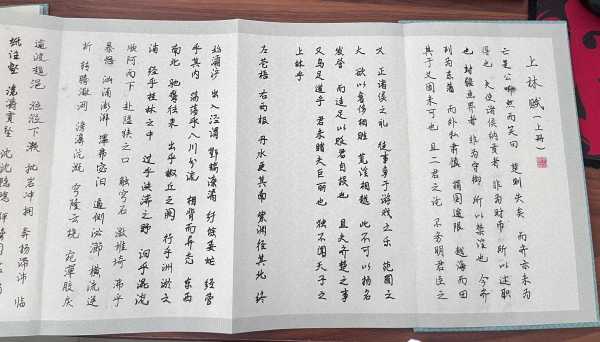 上林赋（上册）
亡是公听然而笑曰 楚则失矣 而齐亦未为
得也 夫使诸侯纳贡者 非为财币 所以述职
也 封疆画界者 非为守御 所以禁淫也 今齐
列为东藩 而外私肃慎 捐国逾限 越海而田
其于义固未可也 且二君之论 不务明君臣之
义 正诸侯之礼 徒事争于游戏之乐 苑囿之
大 欲以奢侈相胜 荒淫相越 此不可以扬名
发誉 而适足以贬君自损也 且夫齐楚之事
又乌足道乎 君未睹夫巨丽也 独不闻天子之
上林乎
左苍梧 右西极 丹水更其南 紫渊径其北 终
始灞浐 出入泾渭 酆镐潦潏 纡馀委蛇 经营
乎其内 荡荡乎八川分流 相背而异态 东西
南北 驰骛往来 出乎椒丘之阙 行乎洲淤之
浦 经乎桂林之中 过乎泱漭之野 汩乎混流
顺阿而下 赴隘狭之口 触穹石 激堆埼 沸乎
暴怒 汹涌澎湃 滭弗宓汩 逼侧泌瀄 横流逆
折 转腾潎洌 滂濞沆溉 穹隆云桡 宛潬胶戾
逾波趋浥 涖涖下濑 批岩冲拥 奔扬滞沛 临
坻注壑 瀺灂霣坠 沈沈隐隐 砰磅訇